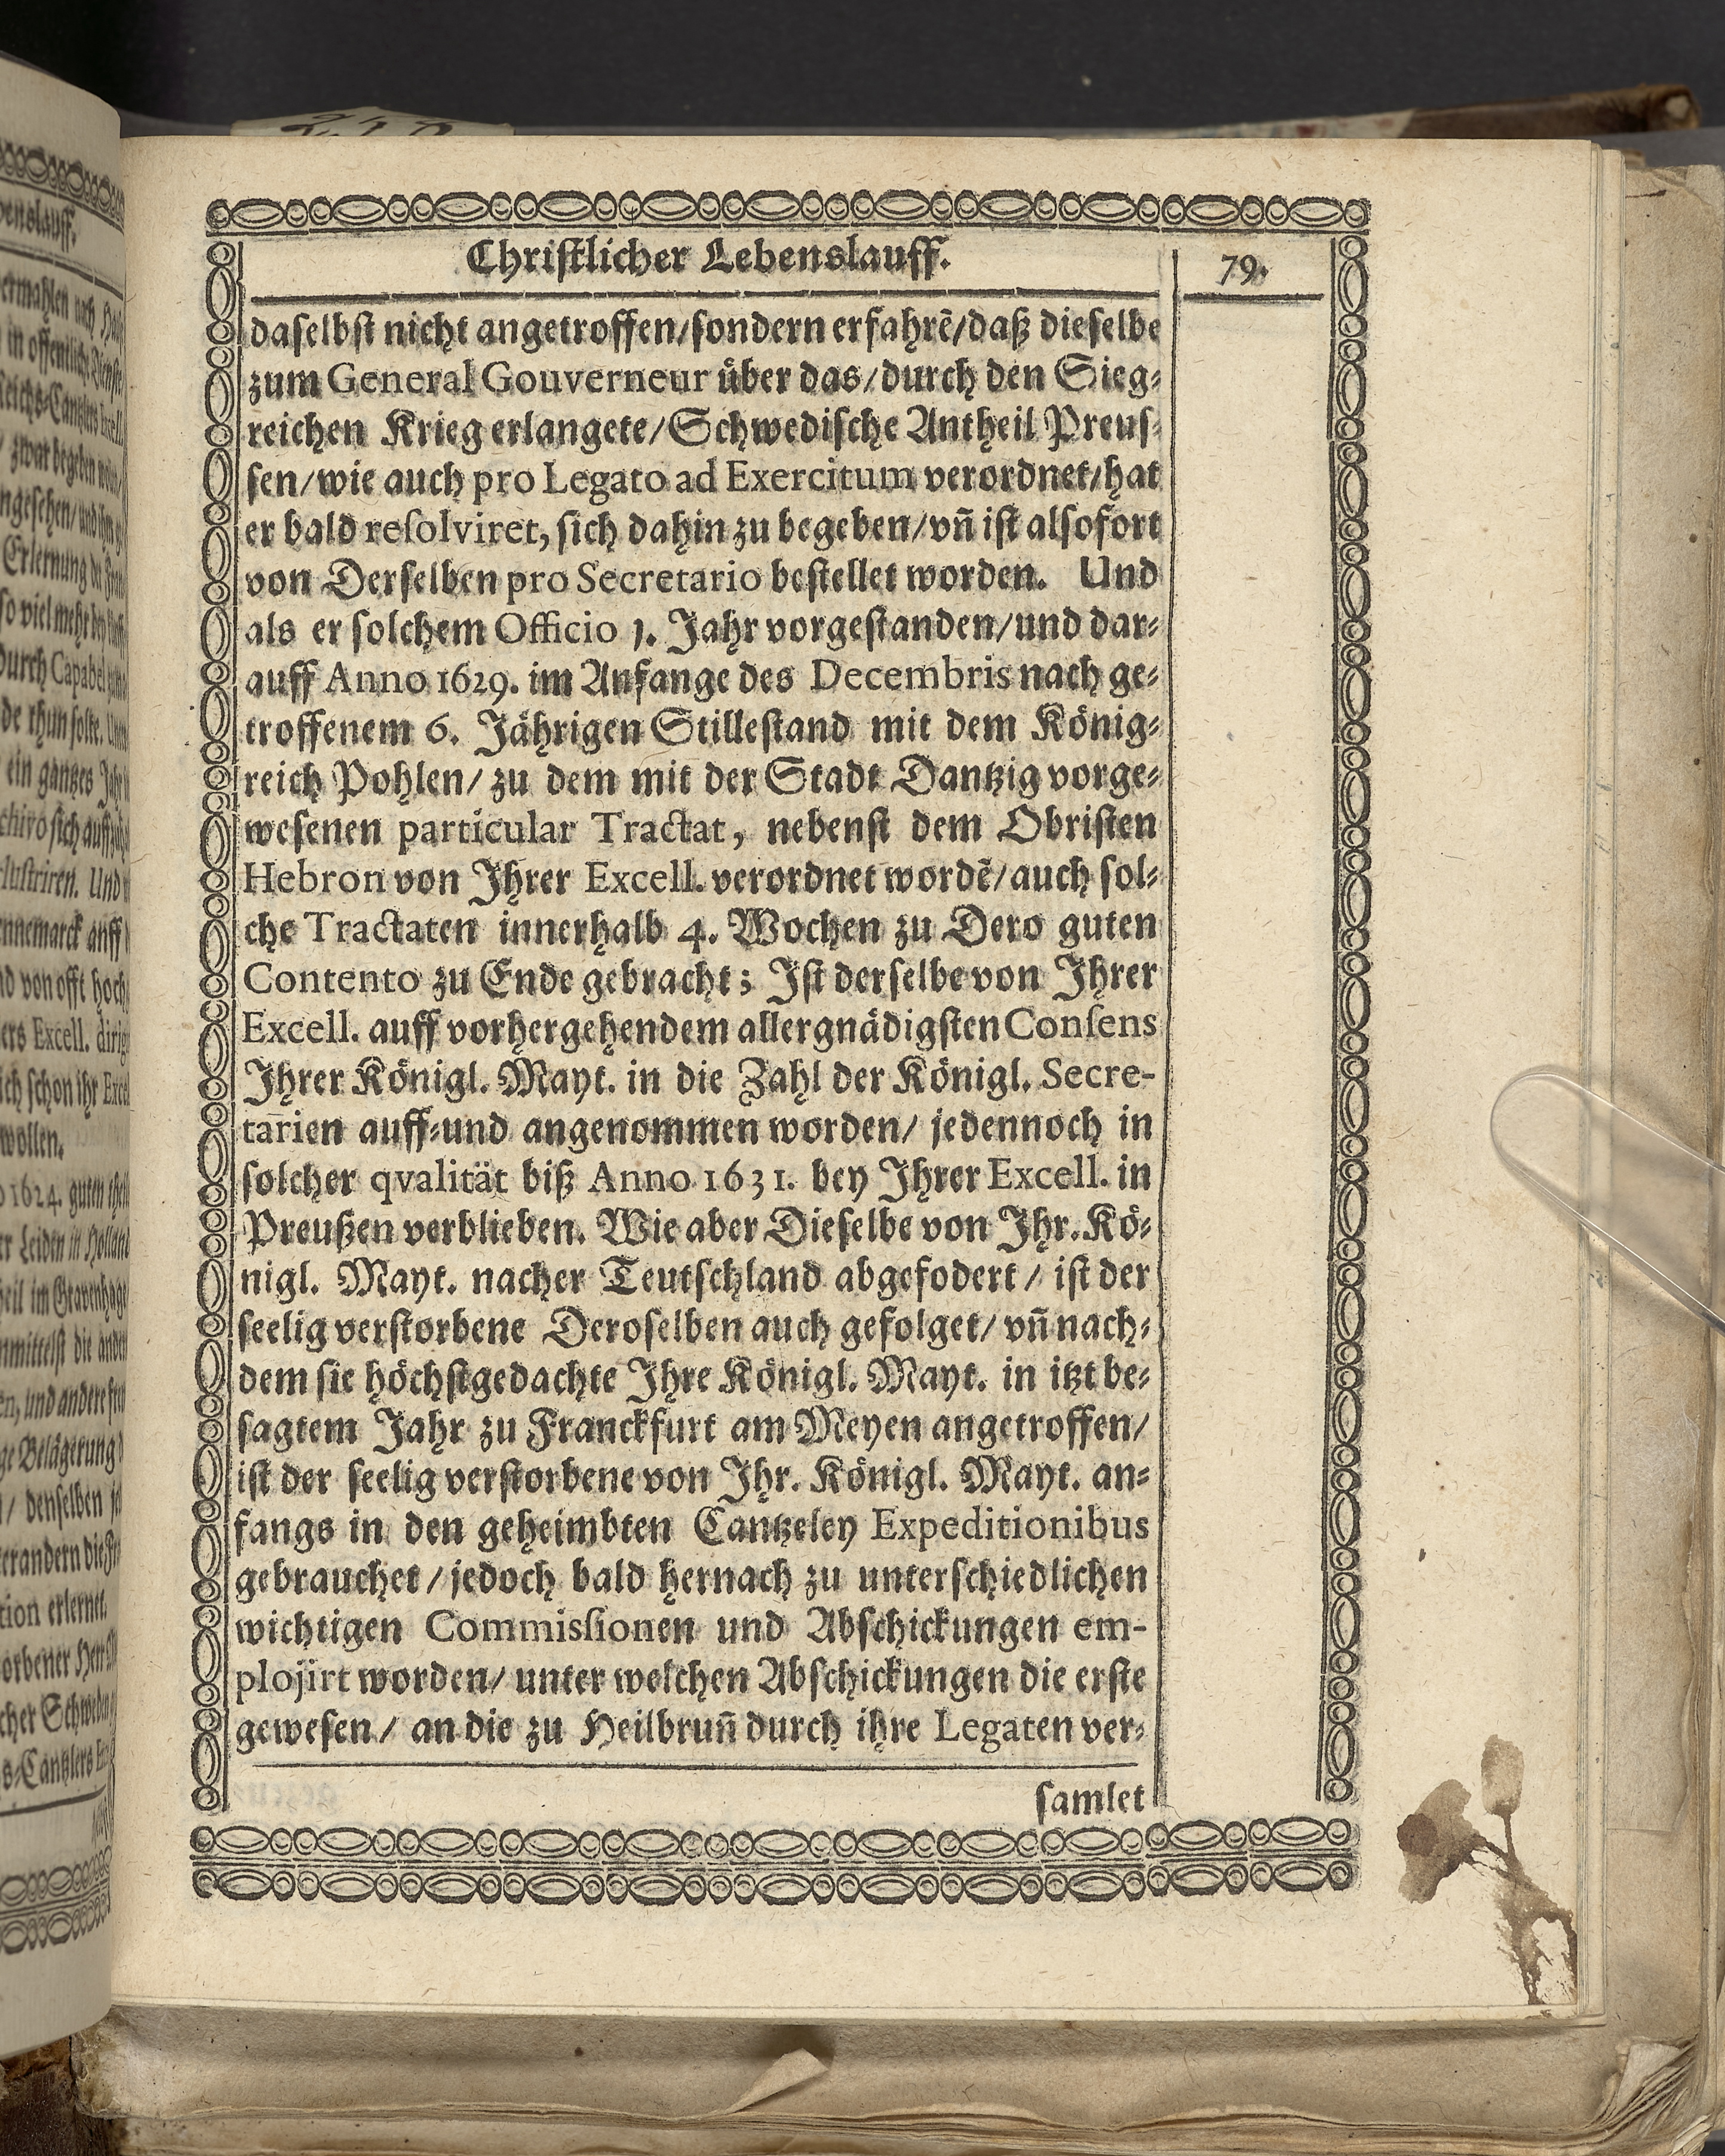 Christlicher Lebenslauff.
79.
daselbst nicht angetroffen/sondern erfahrē/daß dieselbe
zum General Gouverneur über das/durch den Sieg-
reichen Krieg erlangete/Schwedische Antheil Preus-
sen/wie auch pro Legato ad Exercitum verordnet/hat
er bald resolviret, sich dahin zu begeben/vn̄ ist alsofort
von Derselben pro Secretario bestellet worden. Und
als er solchem Officio 1. Jahr vorgestanden/und dar-
auff Anno 1629. im Anfange des Decembris nach ge-
troffenem 6. Jährigen Stillestand mit dem König-
reich Pohlen/ zu dem mit der Stadt Dantzig vorge-
wesenen particular Tractat, nebenst dem Obristen
Hebron von Ihrer Excell. verordnet wordē/auch sol-
che Tractaten innerhalb 4. Wochen zu Dero guten
Contento zu Ende gebracht; Ist derselbe von Ihrer
Excell. auff vorhergehendem allergnädigsten Consens
Ihrer Königl. Mayt. in die Zahl der Königl. Secre-
tarien auff-und angenommen worden/ jedennoch in
solcher qvalität biß Anno 1631. bey Ihrer Excell. in
Preußen verblieben. Wie aber Dieselbe von Ihr. Kö-
nigl. Mayt. nacher Teutschland abgefodert / ist der
seelig verstorbene Deroselben auch gefolget/ vn̄ nach-
dem sie höchstgedachte Ihre Königl. Mayt. in itzt be-
sagtem Jahr zu Franckfurt am Meyen angetroffen/
ist der seelig verstorbene von Ihr. Königl. Mayt. an-
fangs in den geheimbten Cantzeley Expeditionibus
gebrauchet / jedoch bald hernach zu unterschiedlichen
wichtigen Commissionen und Abschickungen em-
plojirt worden/ unter welchen Abschickungen die erste
gewesen / an die zu Heilbrun̄ durch ihre Legaten ver-
samlet